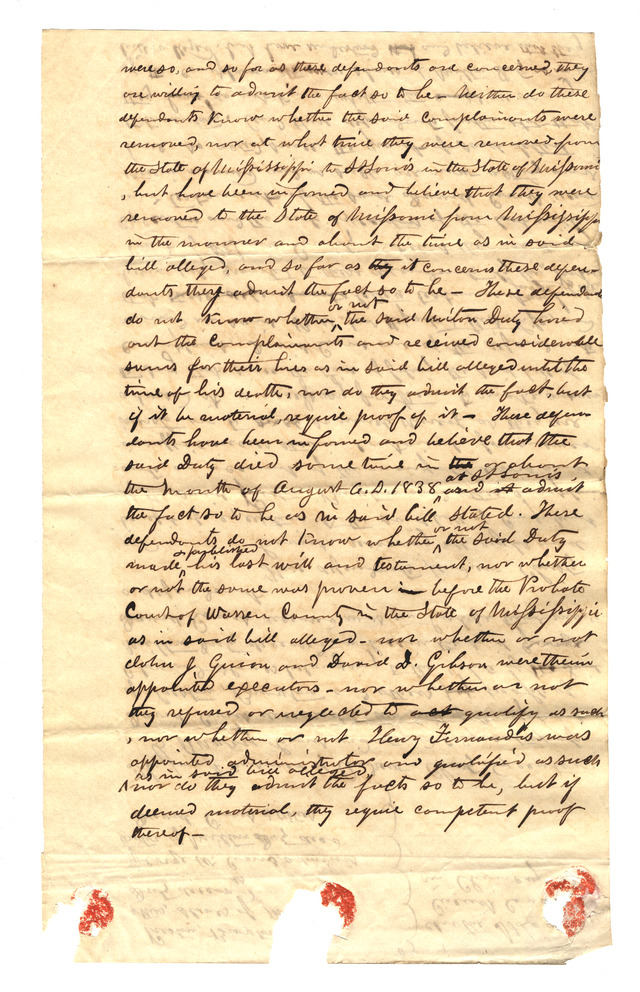 were so, and so far as these defendants are concerned, they
are willing to admit the fact so to be – Neither do these
defendants know whether the said complainants were
removed, nor at what time they were removed from
the State of Mississippi to St Louis in the State of Missouri
, but have been informed and believe that they were
removed to the State of Missouri from Mississippi
in the manner and about the time as in said
bill alleged, and so far as they it concerns these defen-
dants they admit the fact so to be – These defendants
or not
do not know whether the said Milton Duty hired
out the complainants and received considerable
sums for their hires as in said bill alleged until the
time of his death, nor do they admit the fact, but
if it be material, require proof of it – These defen-
dants have been informed and believe that the
said Duty died some time in the or about
at St Louis
the month of August A.D. 1838 and admit
the fact so to be as in said bill stated. These
or not
defendants do not know whether the said Duty
& published
made his last will and testament, nor whether
or not the same was proven in before the Probate
Court of Warren County in the State of Mississippi
as in said bill alleged – nor whether or not
John J Guion and David D. Gibson were therein
appointed executors – nor whether or not
they refused or neglected to act qualify as such
, nor whether or not Henry Fernandis was
appointed administrator and qualified as such
as in said bill alleged
nor do they admit the facts so to be, but if
deemed material, they require competent proof
thereof –